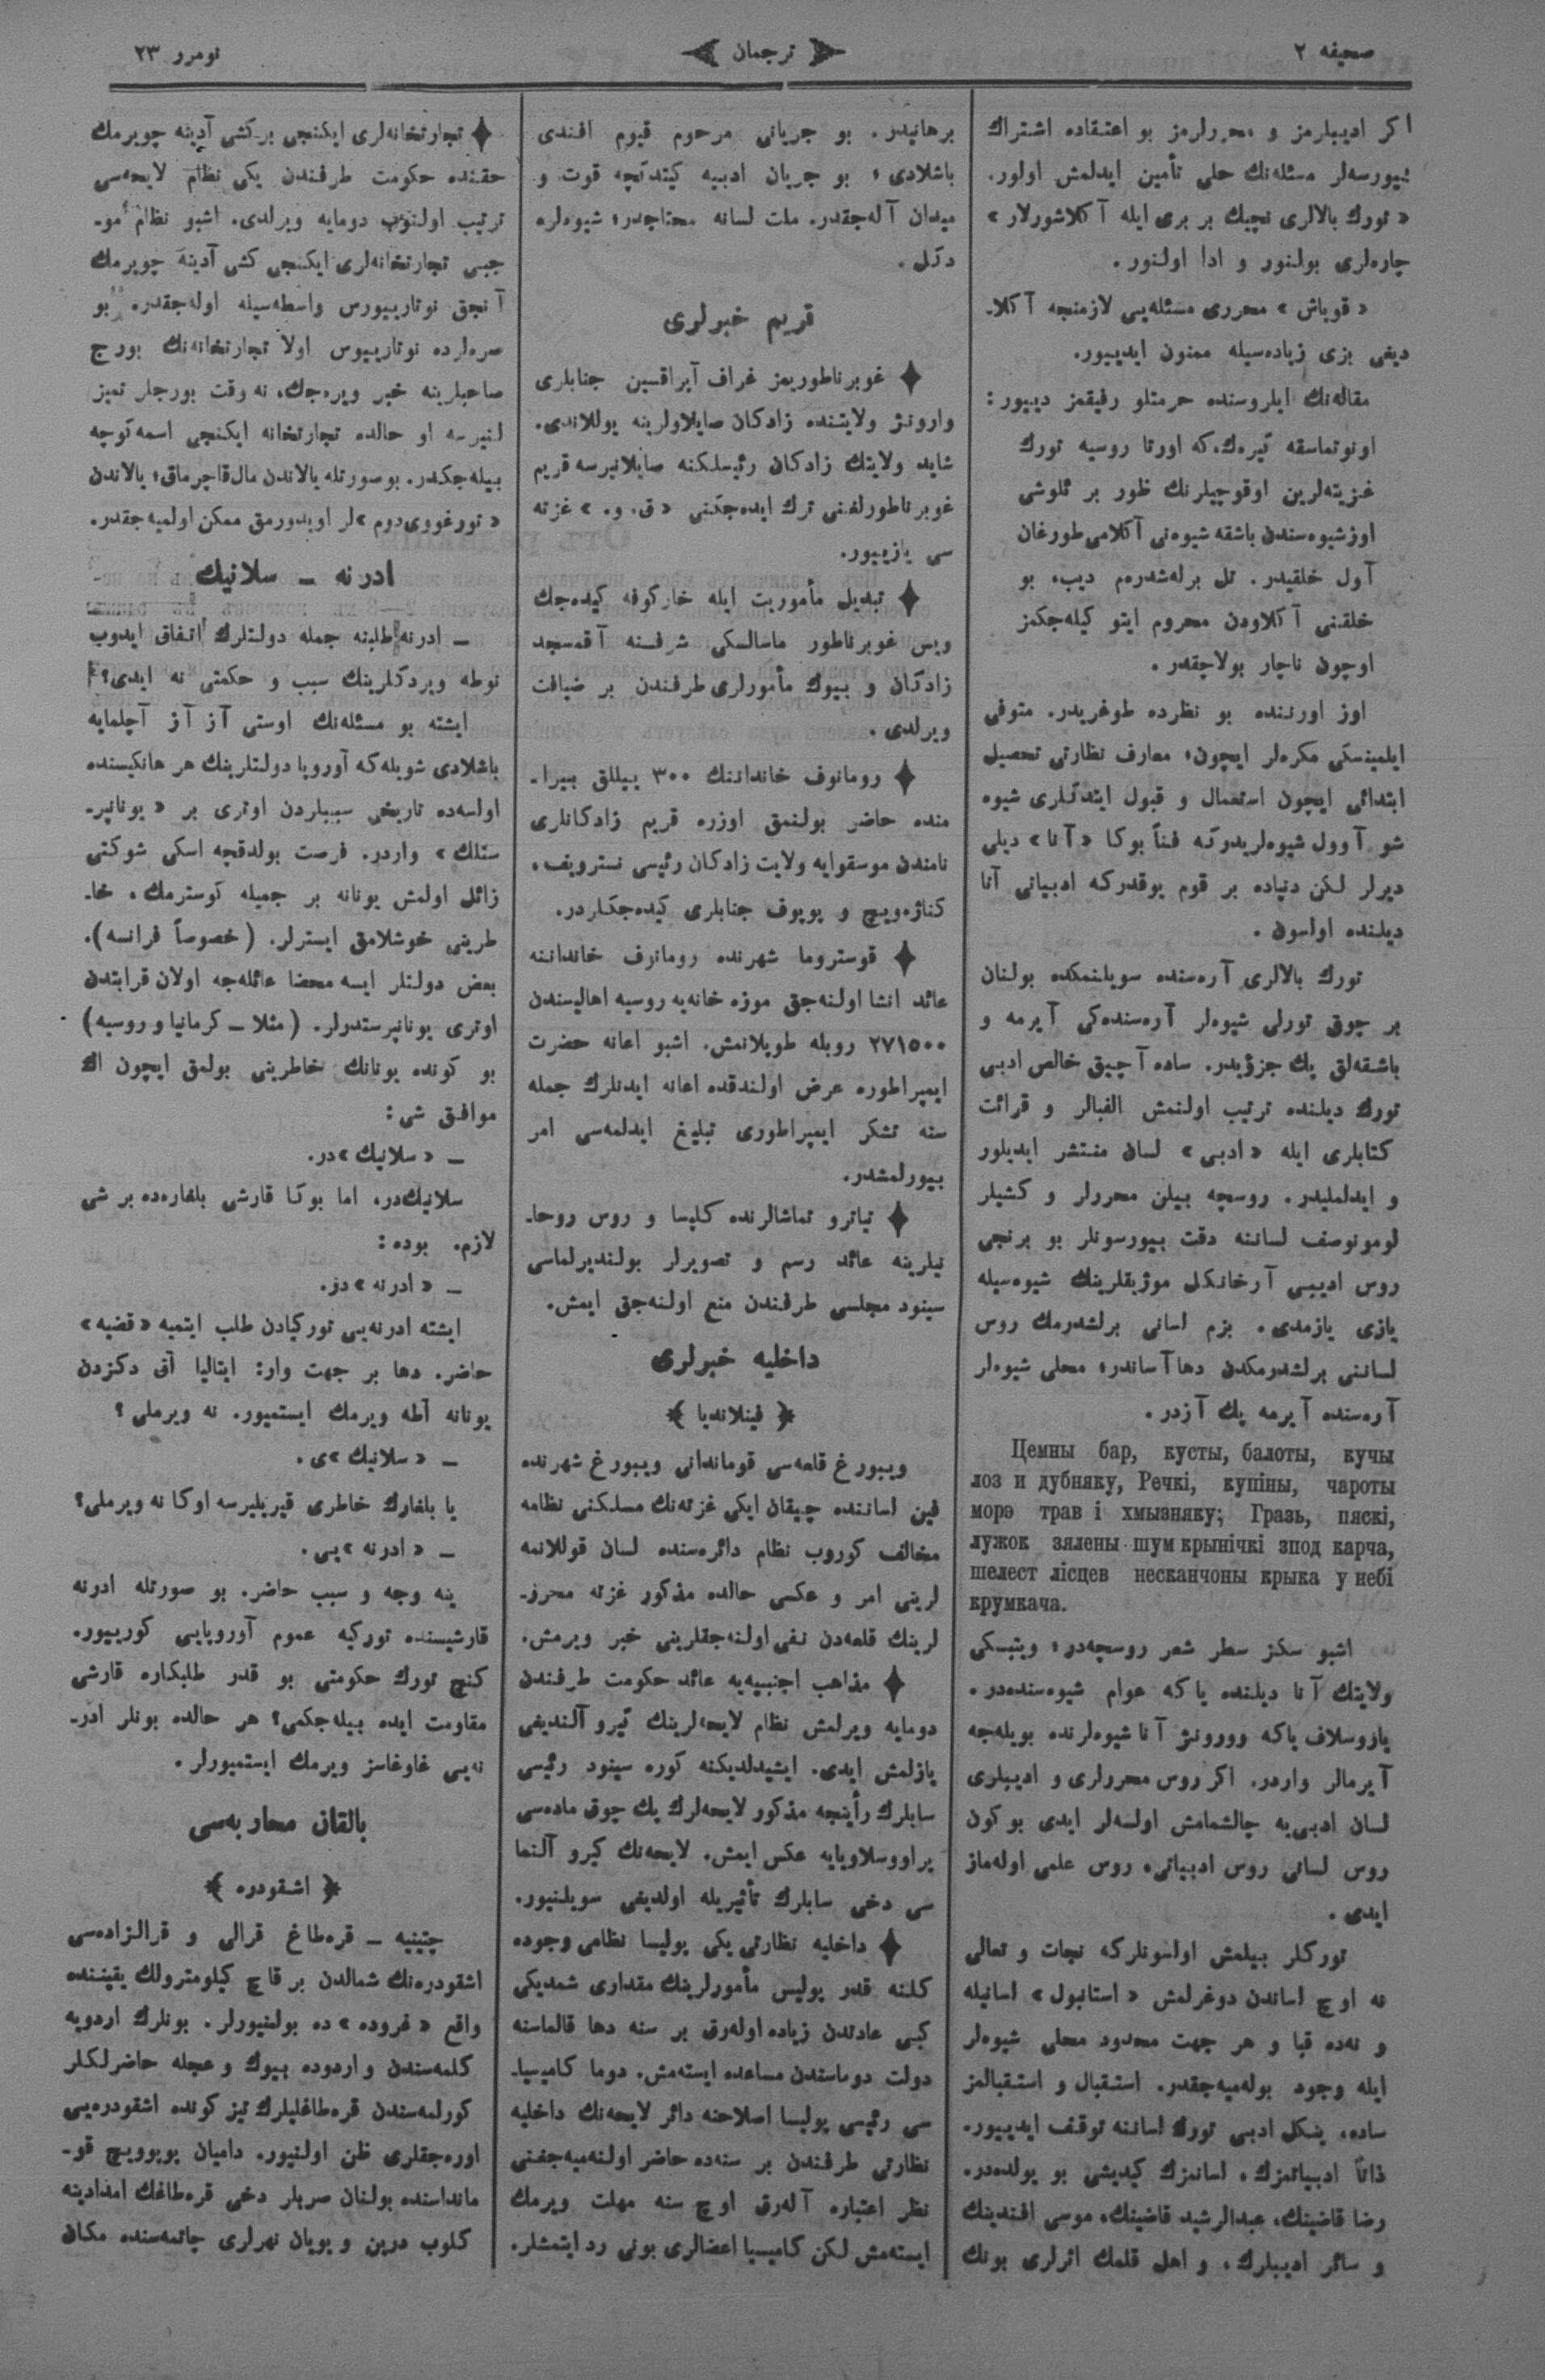 صحیفه ۲
ترجمان
نومرو ۲۳
اكر ادیبلرمز و محررلرمز بو اعتقاده اشتراك
بیورسه‌لر مسئله‌نك حلی تأمین ایدلمش اولور.
«تورك بالالری نچیك بر بری ایله آكلاشورلار»
چاره‌لری بولنور و ادا اولنور.
«قویاش» محرری مسئله‌یی لازمنجه آكلا-
دیغی بزی زیاده‌سیله ممنون ایدییور.
مقاله‌نك ایلروسنده حرمتلو رفیقمز دییور:
اونوتماسقه كیره‌ك، كه اورتا روسیه تورك
غزیته‌لرین اوقوچیلرنك ظور بر ئلوشی
اوزشیوه‌سندن باشقه شیوه‌نی آكلامی طورغان
آول خلقیدر. تل برله‌شدره‌م دیب، بو
خلقنی آكلاودن محروم ایتو كیله‌جكمز
اوچون ناچار بولاچقدر.
اوز اورننده بو نظرده طوغریدر. متوفی
ایلمینسكی مكره‌لر ایچون، معارف نظارتی تحصیل
ابتدائی ایچون استعمال و قبول ایتدكلری شیوه
شو آوول شیوه‌لریدركه فناً بوكا «آنا» دیلی
دیرلر لكن دنیاده بر قوم یوقدركه ادبیاتی آنا
دیلنده اولسون.
تورك بالالری آره‌سنده سویلنمكده بولنان
بر چوق تورلی شیوه‌لر آره‌سنده‌كی آیرمه و
باشقه‌لق پك جزؤیدر. ساده آچیق خالص ادبی
تورك دیلنده ترتیب اولنمش الفبالر و قرائت
كتابلری ایله «ادبی» لسان منتشر ایدیلور
و ایدلملیدر. روسچه بیلن محررلر و كشیلر
لومونوصف لساننه دقت بیورسونلر بو برنجی
روس ادیبی آرخانكل موژیقلرینك شیوه‌سیله
یازی یازمدی. بزم لسانی برلشدرمك روس
لساننی برلشدرمكدن دها آساندر، محلی شیوه‌لر
آره‌سنده آیرمه پك آزدر.
Цемны бар, кусты, балоты, кучы
лоз и дубняку, Речкі, купіны, чароты
морэ трав і хмызняку; Гразь, пяскі,
лужок зялены шум крынічкі зпод карча,
шелест лісцев несканчоны крыка у небі
крумкача.
اشبو سكز سطر شعر روسچه‌در، ویتبسكی
ولایتك آنا دیلنده یاكه عوام شیوه‌سنده‌در.
یازوسلاف یاكه وورونژ آنا شیوه‌لرنده بویله‌جه
آیرمالر واردر. اكر روس محررلری و ادیبلری
لسان ادبی‌یه چالشمامش اولسه‌لر ایدی بوكون
روس لسانی روس ادبیاتی، روس علمی اوله‌ماز
ایدی.
توركلر بیلمش اولسونلركه نجات و تعالی
نه اوچ لساندن دوغرلمش «استانبول» لسانیله
و نه‌ده قبا و هر جهت محدود محلی شیوه‌لر
ایله وجود بوله‌میه‌جقدر. استقبال و استقبالمز
ساده، یتكل ادبی تورك لساننه توقف ایدییور.
ذاتاً ادبیاتمزك، لسانمزك كیدیشی بو یولده‌در.
رضا قاضینك، عبدالرشید قاضینك، موسی افندینك
و سائر ادیبلرك، و اهل قلمك اثرلری بونك
برهانیدر. بو جریانی مرحوم قیوم افندی
باشلادی، بو جریان ادبیه كیتدكچه قوت و
میدان آله‌جقدر. ملت لسانه محتاجدر، شیوه‌لره
دكل.
قریم خبرلری
غوبرناطوریمز غراف آپراقسین جنابلری
وارونژ ولایتنده زادكان صایلاولرینه یوللاندی.
شاید ولایتك زادكان رئیسلكنه صایلانیرسه قریم
غوبرناطورلغنی ترك ایده‌جكنی «ق. و.» غزته
سی یازییور.
تبدیل مأموریت ایله خاركوفه كیده‌جك
ویس غوبرناطور ماسالسكی شرفنه آقمسجد
زادكان و بیوك مأمورلری طرفندن بر ضیافت
ویرلدی.
رومانوف خاندانینك ۳۰۰ ییللق بیرا-
منده حاضر بولنمق اوزره قریم زادكانلری
نامندن موسقوایه ولایت زادكان رئیسی نسترویف،
كناژه‌ویچ و پوپوف جنابلری كیده‌جكلردر.
قوستروما شهرنده رومانوف خانداننه
عائد انشا اولنه‌جق موزه خانه‌یه روسیه اهالیسندن
۲۷۱۵۰۰ روبله طوپلانمش. اشبو اعانه حضرت
ایمپراطوره عرض اولندقده اعانه ایدنلرك جمله
سنه تشكر ایمپراطوری تبلیغ ایدلمه‌سی امر
بیورلمشدر.
تیاترو تماشالرنده كلیسا و روس روحا-
نیلرینه عائد رسم و تصویرلر بولندیرلماسی
سینود مجلسی طرفندن منع اولنه‌جق ایمش.
داخلیه خبرلری
فینلاندیا
ویبورغ قلعه‌سی قوماندانی ویبورغ شهرنده
فین لساننده چیقان ایكی غزته‌نك مسلكنی نظامه
مخالف كوروب نظام دائره‌سنده لسان قوللانمه
لرینی امر و عكسی حالده مذكور غزته محرر-
لرینك قلعه‌دن نفی اولنه‌جقلرینی خبر ویرمش.
مذاهب اجنبیه‌یه عائد حكومت طرفندن
دومایه ویرلمش نظام لایحه‌لرینك كیرو آلندیغی
یازلمش ایدی. ایشیدلدیكنه كوره سینود رئیسی
سابلرك رأینجه مذكور لایحه‌لرك پك چوق ماده‌سی
پراووسلاویایه عكس ایمش. لایحه‌نك كیرو آلنما
سی دخی سابلرك تأثیریله اولدیغی سویلنیور.
داخلیه نظارتی یكی پولیسا نظامی وجوده
كلنه قدر پولیس مأمورلرینك مقداری شمدیكی
كبی عادتدن زیاده اوله‌رق بر سنه دها قالماسنه
دولت دوماسندن مساعده ایسته‌مش. دوما كامیسیا-
سی رئیسی پولیسا اصلاحنه دائر لایحه‌نك داخلیه
نظارتی طرفندن بر سنه‌ده حاضر اولنه‌میه‌جغنی
نظر اعتباره آله‌رق اوچ سنه مهلت ویرمك
ایسته‌مش لكن كامیسیا اعضالری بونی رد ایتمشلر.
تجارتخانه‌لری ایكنجی بركشی آدینه چویرمك
حقنده حكومت طرفندن یكی نظام لایحه‌سی
ترتیب اولنوب دومایه ویرلدی. اشبو نظام مو-
جبی تجارتخانه‌لری ایكنجی كشی آدینه چویرمك
آنجق نوتارییورس واسطه‌سیله اوله‌جقدر. بو
صره‌لرده نوتارییوس اولا تجارتخانه‌نك بورج
صاحبلرینه خبر ویره‌جك، نه وقت بورجلر تمیز
لنیرسه او حالده تجارتخانه ایكنجی اسمه كوچه
بیله‌جكدر. بو صورتله یالاندن مال قاچرماق، یالاندن
«تورغووی دوم»لر اویدورمق ممكن اولمیه‌جقدر.
ادرنه – سلانیك
– ادرنه طلبنه جمله دولتلرك اتفاق ایدوب
نوطه ویردكلرینك سبب و حكمتی نه ایدی؟
ایشته بو مسئله‌نك اوستی آز آز آچلمایه
باشلادی شویله‌كه آوروپا دولتلرینك هر هانكیسنده
اولسه‌ده تاریخی سببلردن اوتری بر «یونانپر-
ستلك» واردر. فرصت بولدقجه اسكی شوكتی
زائل اولمش یونانه بر جمیله كوسترمك، خا-
طرینی خوشلامق ایسترلر. (خصوصاً فرانسه).
بعض دولتلر ایسه محضا عائله‌جه اولان قرابتدن
اوتری یونانپرستدولر. (مثلا – كرمانیا و روسیه)
بو كونده یونانك خاطرینی بولمق ایچون اك
موافق شی:
– «سلانیك»در.
سلانیك‌در، اما بوكا قارشی بلغاره‌ده بر شی
لازم. بوده:
– «ادرنه»دز.
ایشته ادرنه‌یی توركیادن طلب ایتمیه «قضیه»
حاضر. دها بر جهت وار: ایتالیا آق دكزدن
یونانه آطه ویرمك ایستمیور. نه ویرملی؟
– «سلانیك»ی.
یا بلغارك خاطری قیریلیرسه اوكا نه ویرملی؟
– «ادرنه»یی.
ینه وجه و سبب حاضر. بو صورتله ادرنه
قارشیسنده توركیه عموم آوروپایی كورییور.
كنچ تورك حكومتی بو قدر طلبكاره قارشی
مقاومت ایده بیله‌جكمی؟ هر حالده بونلر ادر-
نه‌یی غاوغاسز ویرمك ایستمیورلر.
بالقان محاربه‌سی
اشقودره
چتینیه – قره‌طاغ قرالی و قرالزاده‌سی
اشقودره‌نك شمالدن بر قاچ كیلومترولك یقیننده
واقع «غروده» ده بولنیورلر. بونلرك اردویه
كلمه‌سندن و اردوده بیوك و عجله حاضرلكلر
كورلمه‌سندن قره‌طاغلیلرك تیز كونده اشقودره‌یی
اوره‌جقلری ظن اولنیور. دامیان پوپوویچ قو-
مانداسنده بولنان صربلر دخی قره‌طاغك امدادینه
كلوب درین و بویان نهرلری چاتمه‌سنده مكان